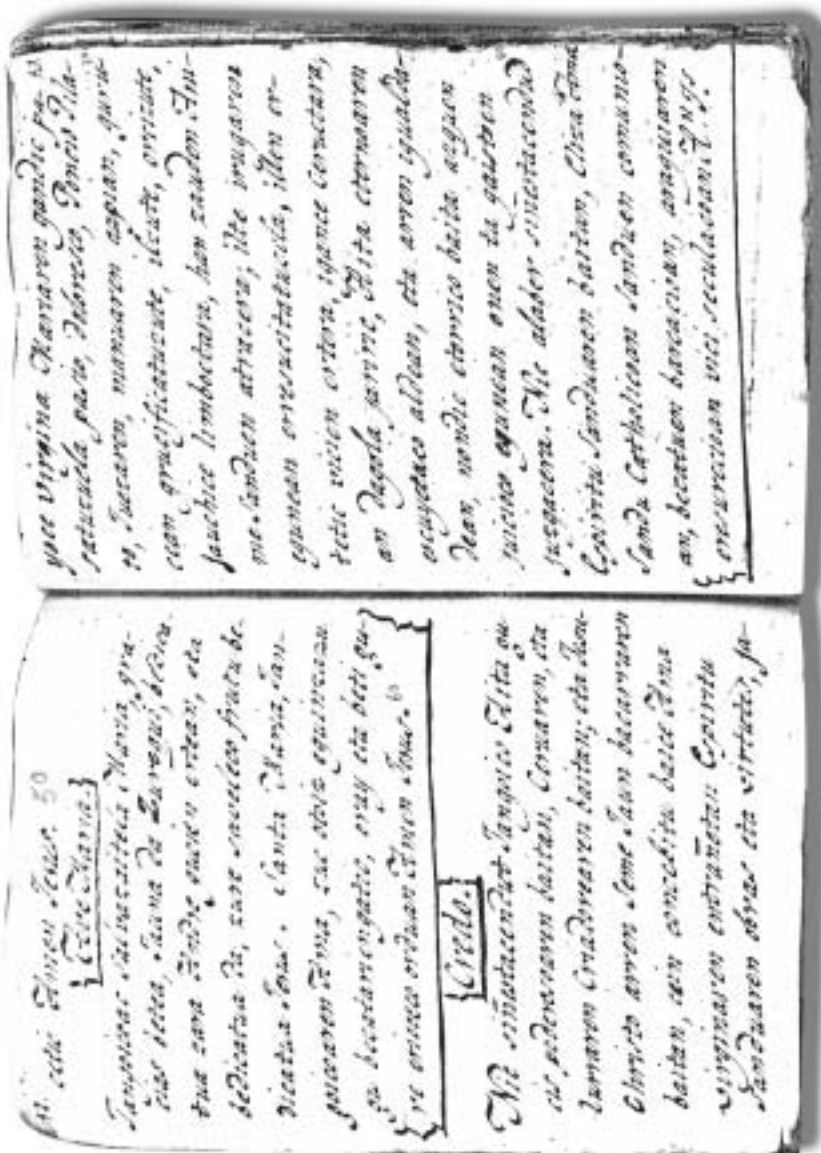 52. cetic Amen Jesus. 5º
{Ave Maria.}
Jangoicoac salvaceizela Maria, gra-
cias betea, Jauna da Zurequi, bedica-
tua zara Andre gucien artean, eta
bedicatua da, zure sabeleco frutu be-
dicatua Jesus. Santa Maria, Jan-
goicoaren Ama, zuc otoiz eguinezazu
gu becatariengatic, oray eta beti gu-
re erioco orduan Amen Jesus. 6º
{Credo.}
Nic sinestacendut Jangoico Aita gu-
cis poderearen baitan, Ceruaren, eta
Lurraren Criadorearen baitan, eta Jesu-
Christo arren Seme Jaun bacarraren
baitan, cein concebitu baice Ama
Virginaren entrañetan Espiritu
Sanduaren obraz eta virtutez, ja-
yoce Virgina Mariaren gandic pa-
saturuela pasio, doloresco, Poncio Pila-
to, Juezaren, manuaren azpian, guru-
cean crucificatucute, ilcute, orzicute,
jauchice limboctara, han zauden Ani-
ma Sanduen atracera; ilte irugarren
egunean erresucitatucela, illen ar-
tetic vicien artera, igance ceruetara,
an dagola jarriric, Aita eternoaren
escuytaco aldean, eta arren igualda-
dean, nondic etorrico baita azquen
juicioco egunean onen ta gaisten
juzgacera. Nic alaber sinestacendud
Espiritu Sanduaren baitan, Eliza Ama
Sandu Catholicoan Sanduen comunio-
an, becatuen barcacioan, araguiaren
erresurreccioan vici seculacoan A. Jys.